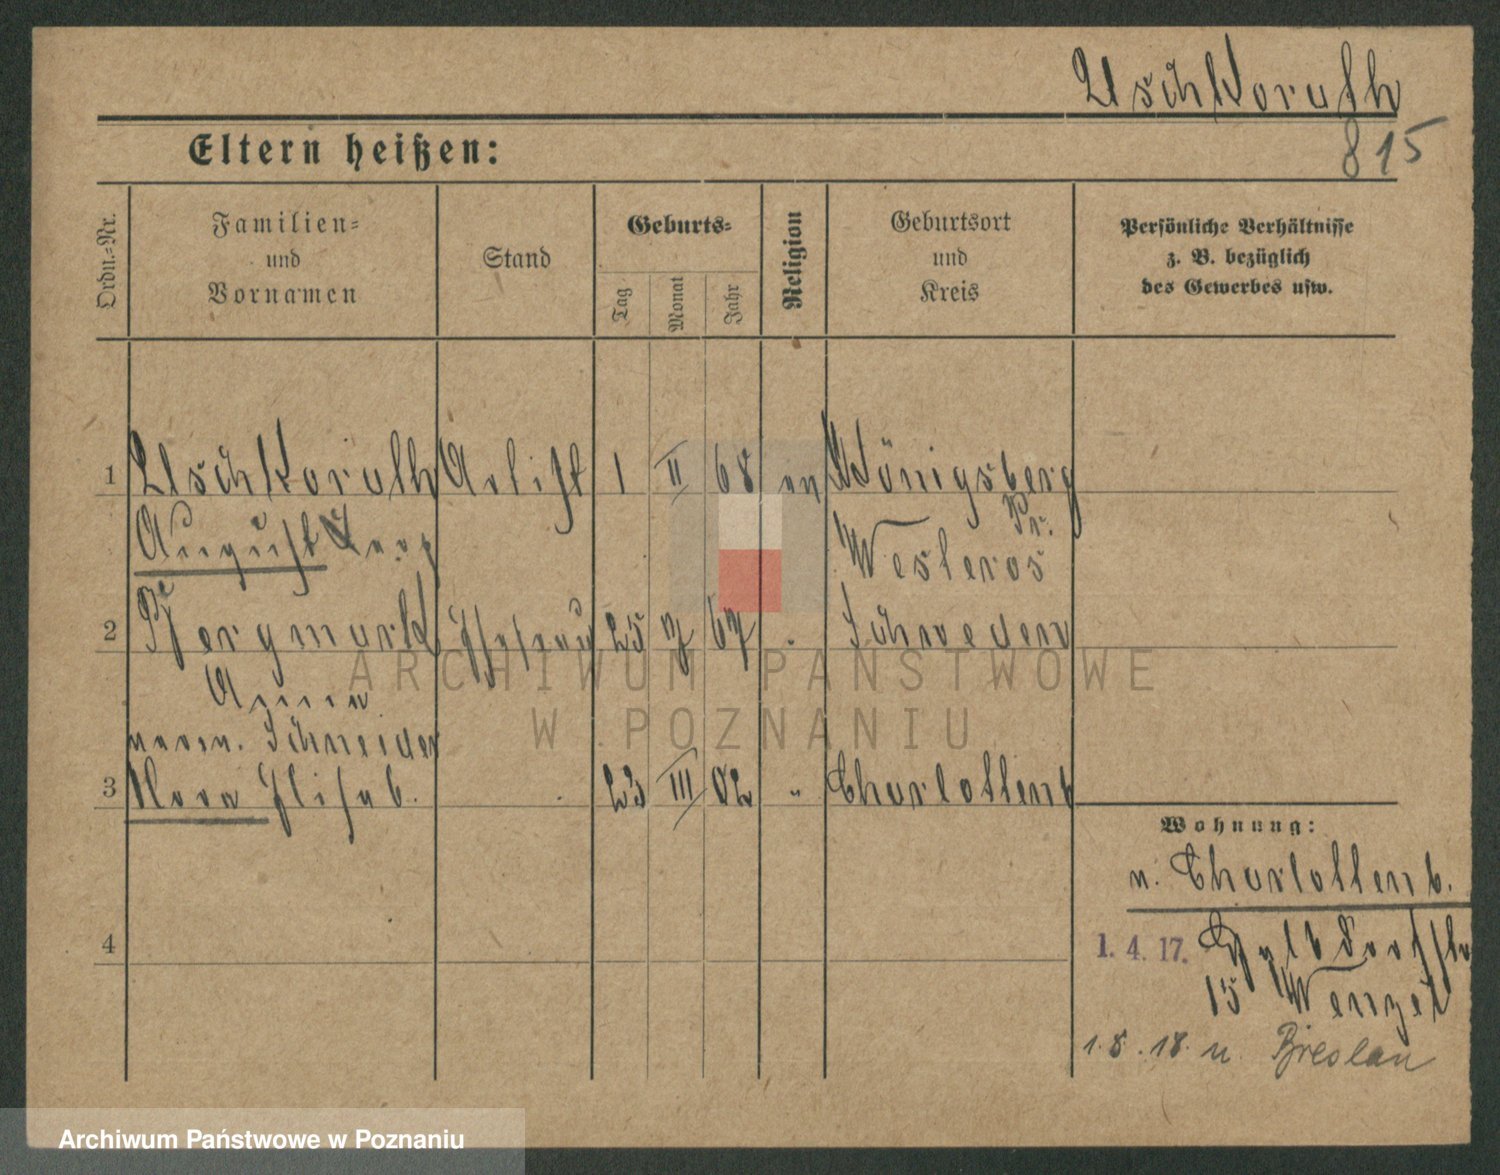 Uschkorath
815
Eltern heißen:
Ordn.=Nr.
Familien=
und
Vornamen
Stand
Geburts=
Tag
Monat
Jahr
Religion
Geburtsort
und
Kreis
Persönliche Verhältnisse
z. B. bezüglich
des Gewerbes usw.
1 Uschkorath Artist 1 II 68 ev Königsberg
August Pr.
2 Bergmark Ehefrau 25 67 Westeros
Anna Schweden
verw. Schneider
3 Nora Elisab. 23 III 02 " Charlottenb
Wohnung:
n. Charlottenb.
4
1. 4. 17.
15 Wenzel
1. 8. 18. n. Breslau
ARCHIWUM PAŃSTWOWE
W POZNANIU
Archiwum Państwowe w Poznaniu